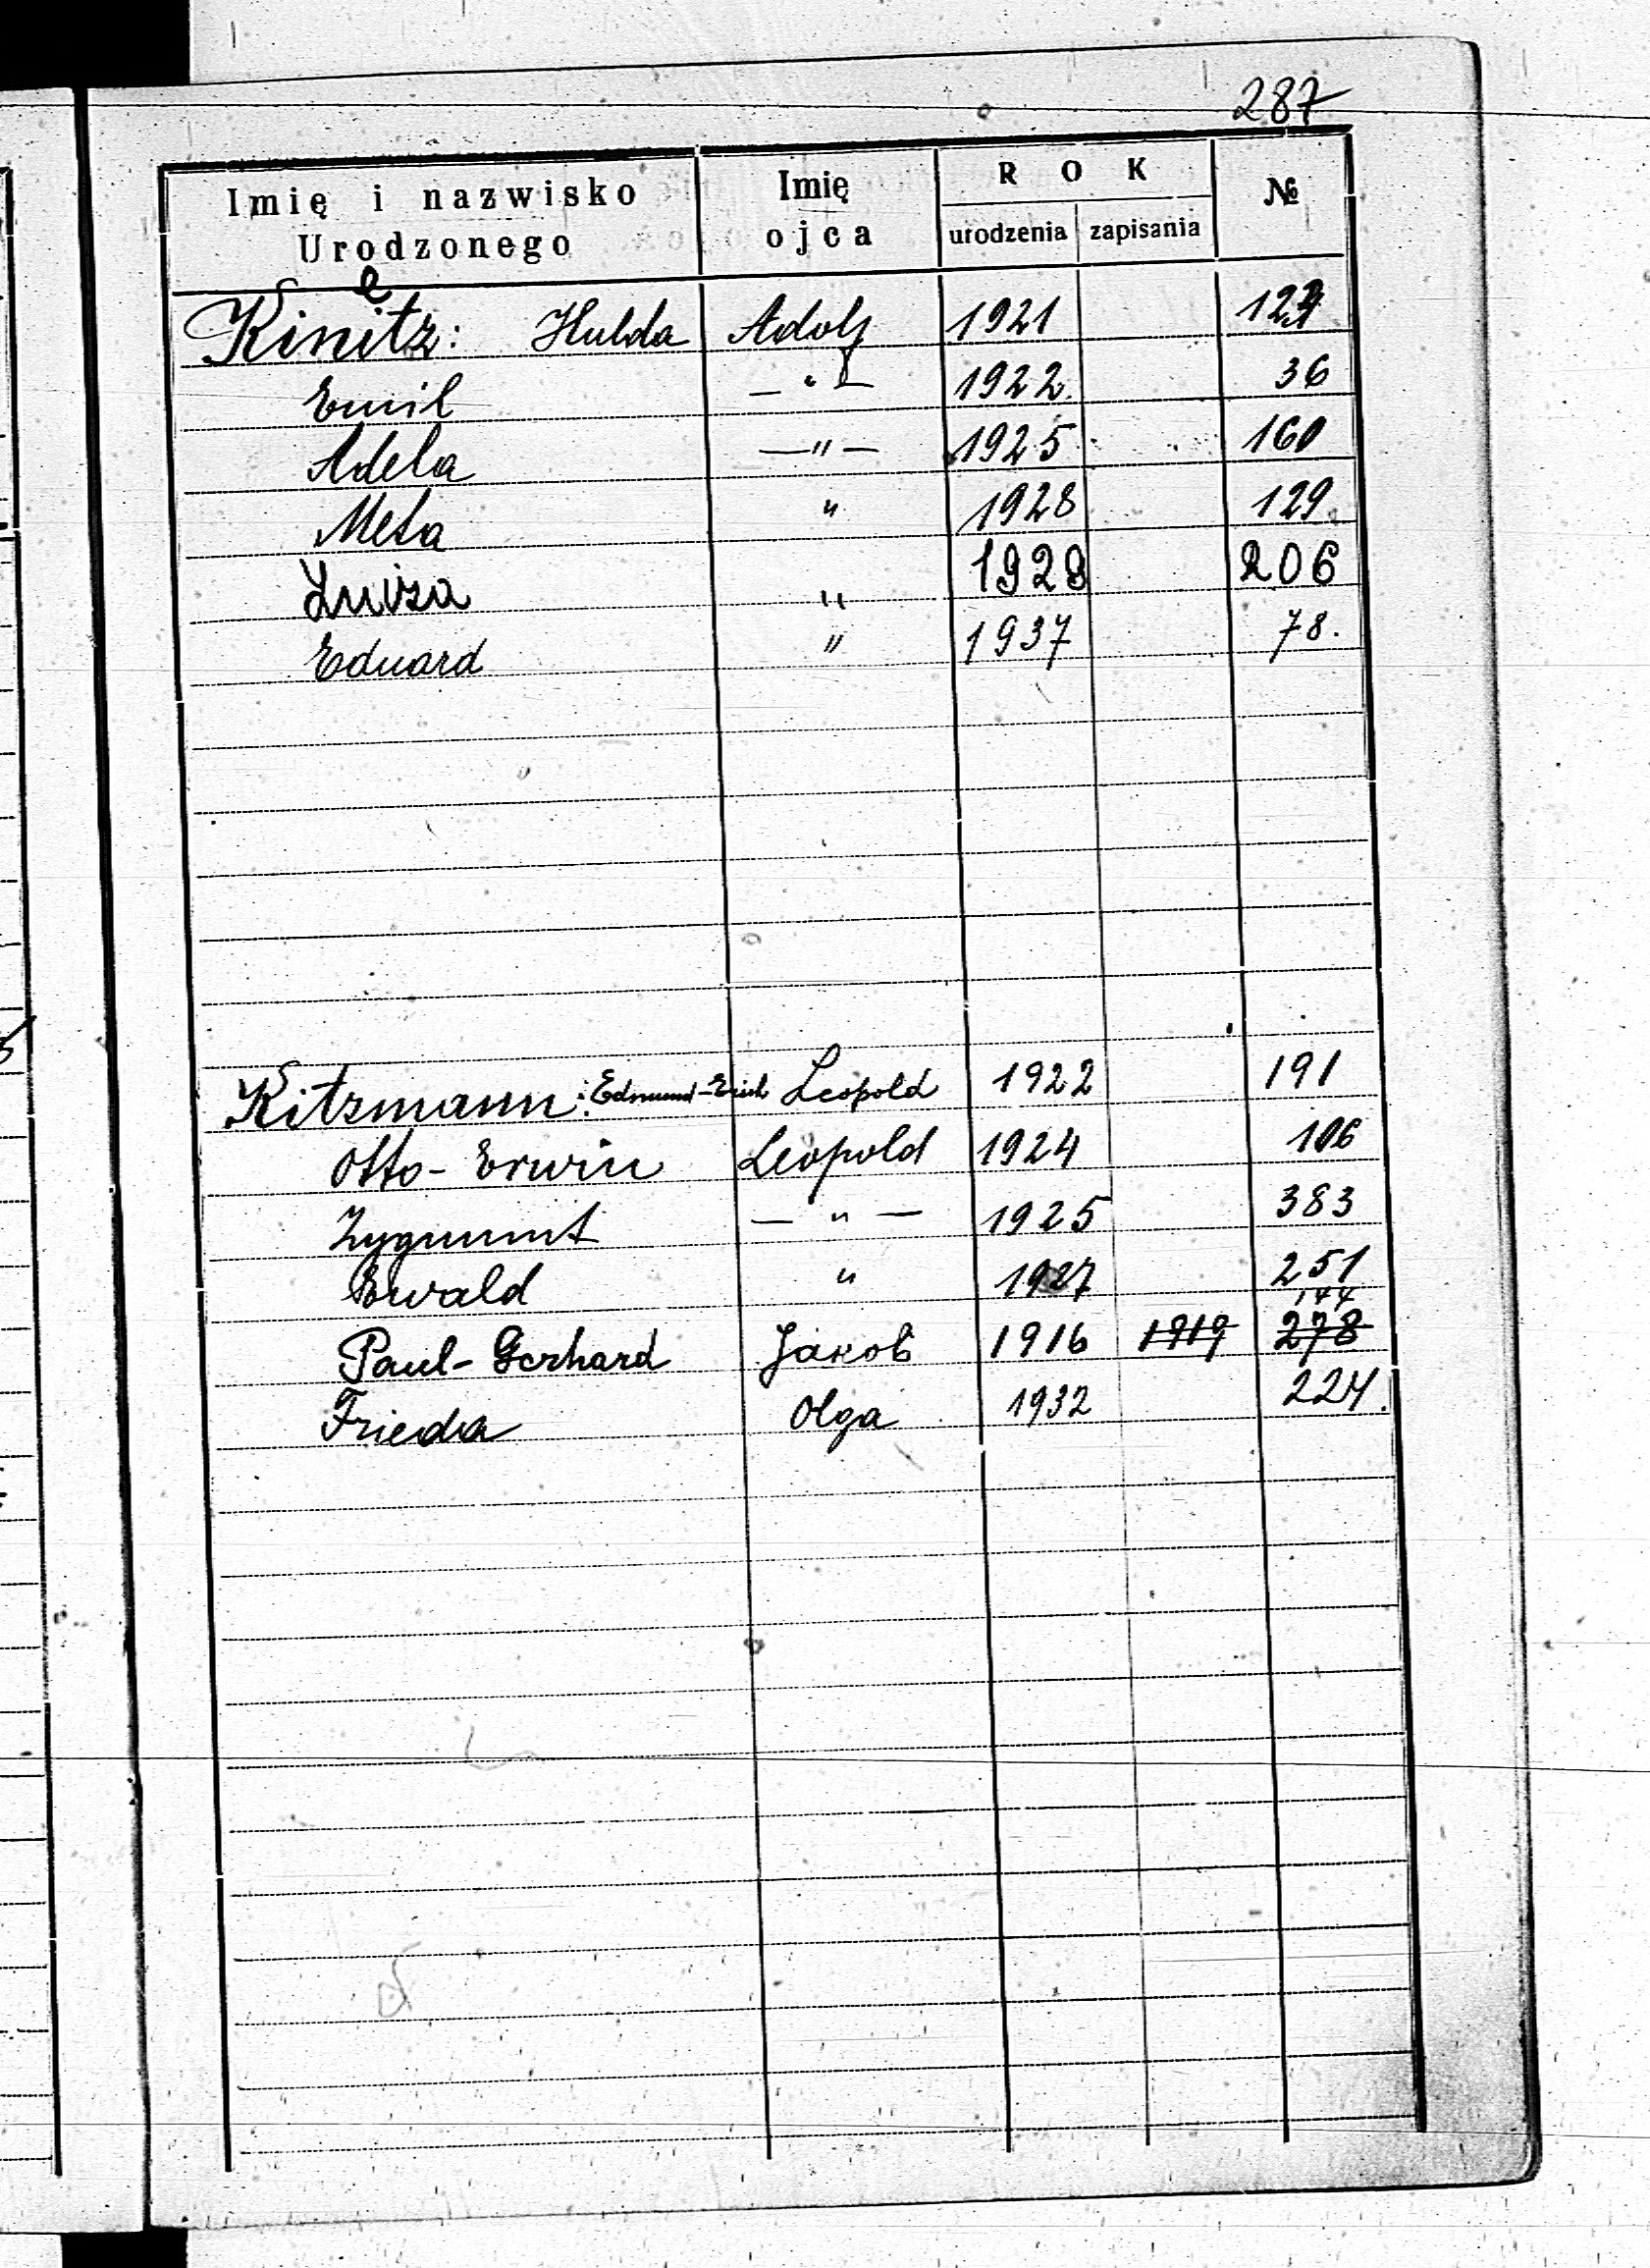 287
Imię i nazwisko Urodzonego | Imię ojca | ROK urodzenia | zapisania | №
e
Kinitz: Hulda Adolf 1921
Emil — " — 1922. 36
Adela — " — 1925 160
Meta " 1928 129
Luiza " 1928 206
Eduard " 1937 78.
Kitzmann: Edmund-Erich Leopold 1922 191
Otto-Erwin Leopold 1924 106
Zygmunt — " — 1925 383
Ewald " 1927 251
144
Paul-Gerhard Jakob 1916 1919 278
Frieda Olga 1932 224.